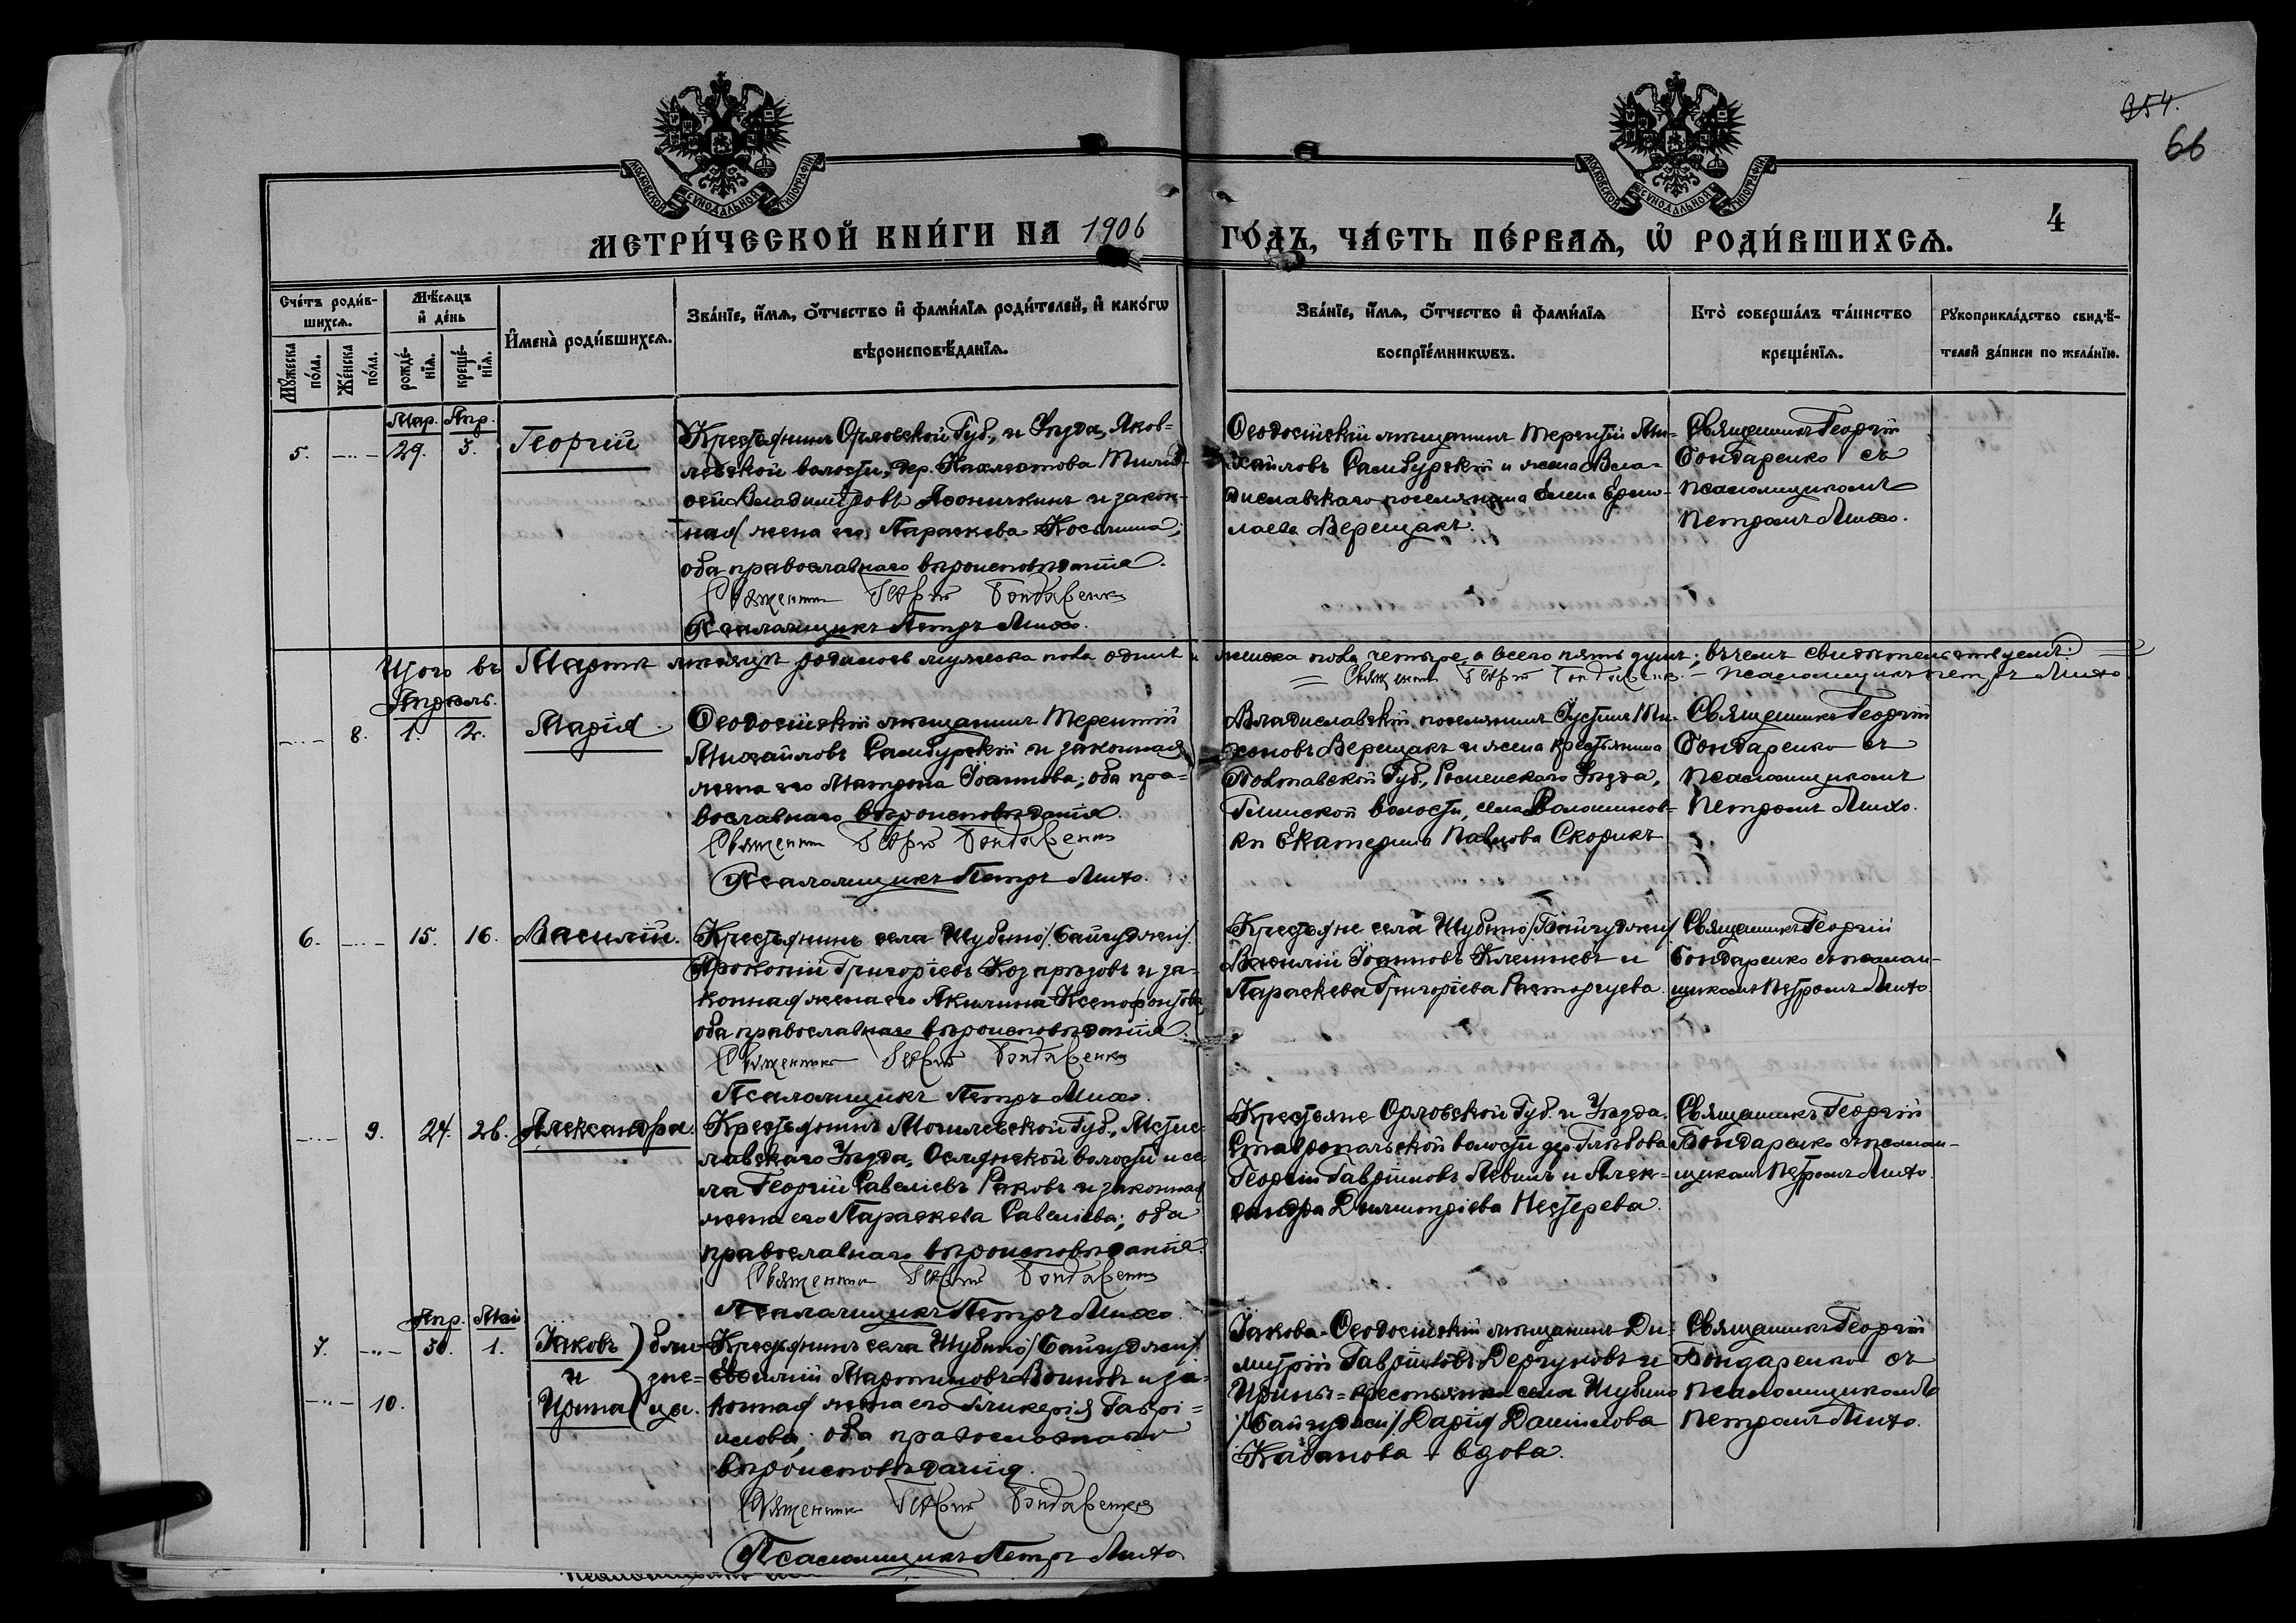 354.
66
МОСКОВСКОЙ СУНОДАЛЬНОЙ ТИПОГРАФІИ
МОСКОВСКОЙ СУНОДАЛЬНОЙ ТИПОГРАФІИ
4
МЕТРИ́ЧЕСКОЙ КНИ́ГИ НА 1906 ГО́ДЪ, ЧА́СТЬ ПЕ́РВАѦ, Ѡ РОДИ́ВШИХСѦ.
Сче́тъ роди́в-
шихсѧ.
Мꙋ́жеска по́ла.
Же́нска по́ла.
Мѣ́сѧцъ
и де́нь
рожде́-
нїѧ.
креще́-
нїѧ.
Имена̀ роди́вшихсѧ.
Зва́нїе, и́мѧ, ѻ́тчество и фами́лїѧ роди́телей, и како́гѡ
вѣроисповѣ́данїѧ.
Зва́нїе, и́мѧ, ѻ́тчество и фами́лїѧ
воспрїе́мникѡвъ.
Кто̀ соверша́лъ та́инство
креще́нїѧ.
Рꙋкоприкла́дство свидѣ́-
телей за́писи по жела́нїю.
Мар. Апр.
5. 29. 3. Георгій
Крестьянинъ Орловской Губ., и Уѣзда, Яков-
левской волости, дер.
Владиміровъ и закон-
ная жена его Параскева Косьмина;
оба православнаго вѣроисповѣданія.
Священникъ Георгій Бондаренко
Псаломщикъ Петръ Михо.
Ѳеодосійскій мѣщанинъ Терентій Ми-
хайловъ Самбурскій и жена Вла-
диславскаго поселянина Елена Ермо-
лаева Верещакъ.
Священникъ Георгій
Бондаренко съ
псаломщикомъ
Петромъ Михо.
Итого въ Мартѣ мѣсяцѣ родилось мужеска пола одинъ и женска пола четыре, а всего пять душъ; въ чемъ свидѣтельствуемъ:
Священникъ Георгій Бондаренко. – Псаломщикъ Петръ Михо
Апрѣль.
8. 1. 2. Марія
Ѳеодосійскій мѣщанинъ Терентій
Михайловъ Самбурскій и законная
жена его Матрона Іоаннова; оба пра-
вославнаго вѣроисповѣданія.
Священникъ Георгій Бондаренко
Псаломщикъ Петръ Михо.
Владиславскій поселянинъ Іустинъ Ти-
хоновъ Верещакъ и жена крестьянина
Полтавской Губ., Роменскаго Уѣзда,
Глинской волости, села Волошинов-
ки Екатерина Павлова Скорикъ
Священникъ Георгій
Бондаренко съ
псаломщикомъ
Петромъ Михо.
6. 15. 16. Василій.
Крестьянинъ села Шубино /Байгуджи/
Прокопій Григоріевъ Козырѣзовъ и за-
конная жена его Акилина Ксенофонтова
оба православнаго вѣроисповѣданія.
Священникъ Георгій Бондаренко
Псаломщикъ Петръ Михо.
Крестьяне села Шубино /Байгуджи/
Василій Іоанновъ Клепневъ и
Параскева Григоріева Расторгуева.
Священникъ Георгій
Бондаренко съ псалом-
щикомъ Петромъ Михо.
9. 24. 26. Александра.
Крестьянинъ Могилевской Губ., Мстис-
лавскаго Уѣзда, Ослянской волости и се-
ла Георгій Савеліевъ Раковъ и законная
жена его Параскева Савеліева; оба
православнаго вѣроисповѣданія.
Священникъ Георгій Бондаренко
Псаломщикъ Петръ Михо.
Крестьяне Орловской Губ. и Уѣзда,
Ставропольской волости дер. Глѣбова
Георгій Гавріиловъ Левинъ и Алек-
сандра Димитріева Нестерева.
Священникъ Георгій
Бондаренко съ псалом-
щикомъ Петромъ Михо.
Апр. Май
7. 30. 1. Іаковъ
и
10. Ирина
близне-
цы.
Крестьянинъ села Шубино /Байгуджи/
Василій Мартиновъ Воиновъ и за-
конная жена его Гликерія Гаврі-
илова; оба православнаго
вѣроисповѣданія.
Священникъ Георгій Бондаренко
Псаломщикъ Петръ Михо.
Іакова - Ѳеодосійскій мѣщанинъ Ди-
митрій Гавріиловъ Дергуновъ и
Ирины = крестьянка села Шубино
/Байгуджи/ Дарія Даніилова
Кабанова - вдова.
Священникъ Георгій
Бондаренко съ
псаломщикомъ
Петромъ Михо.